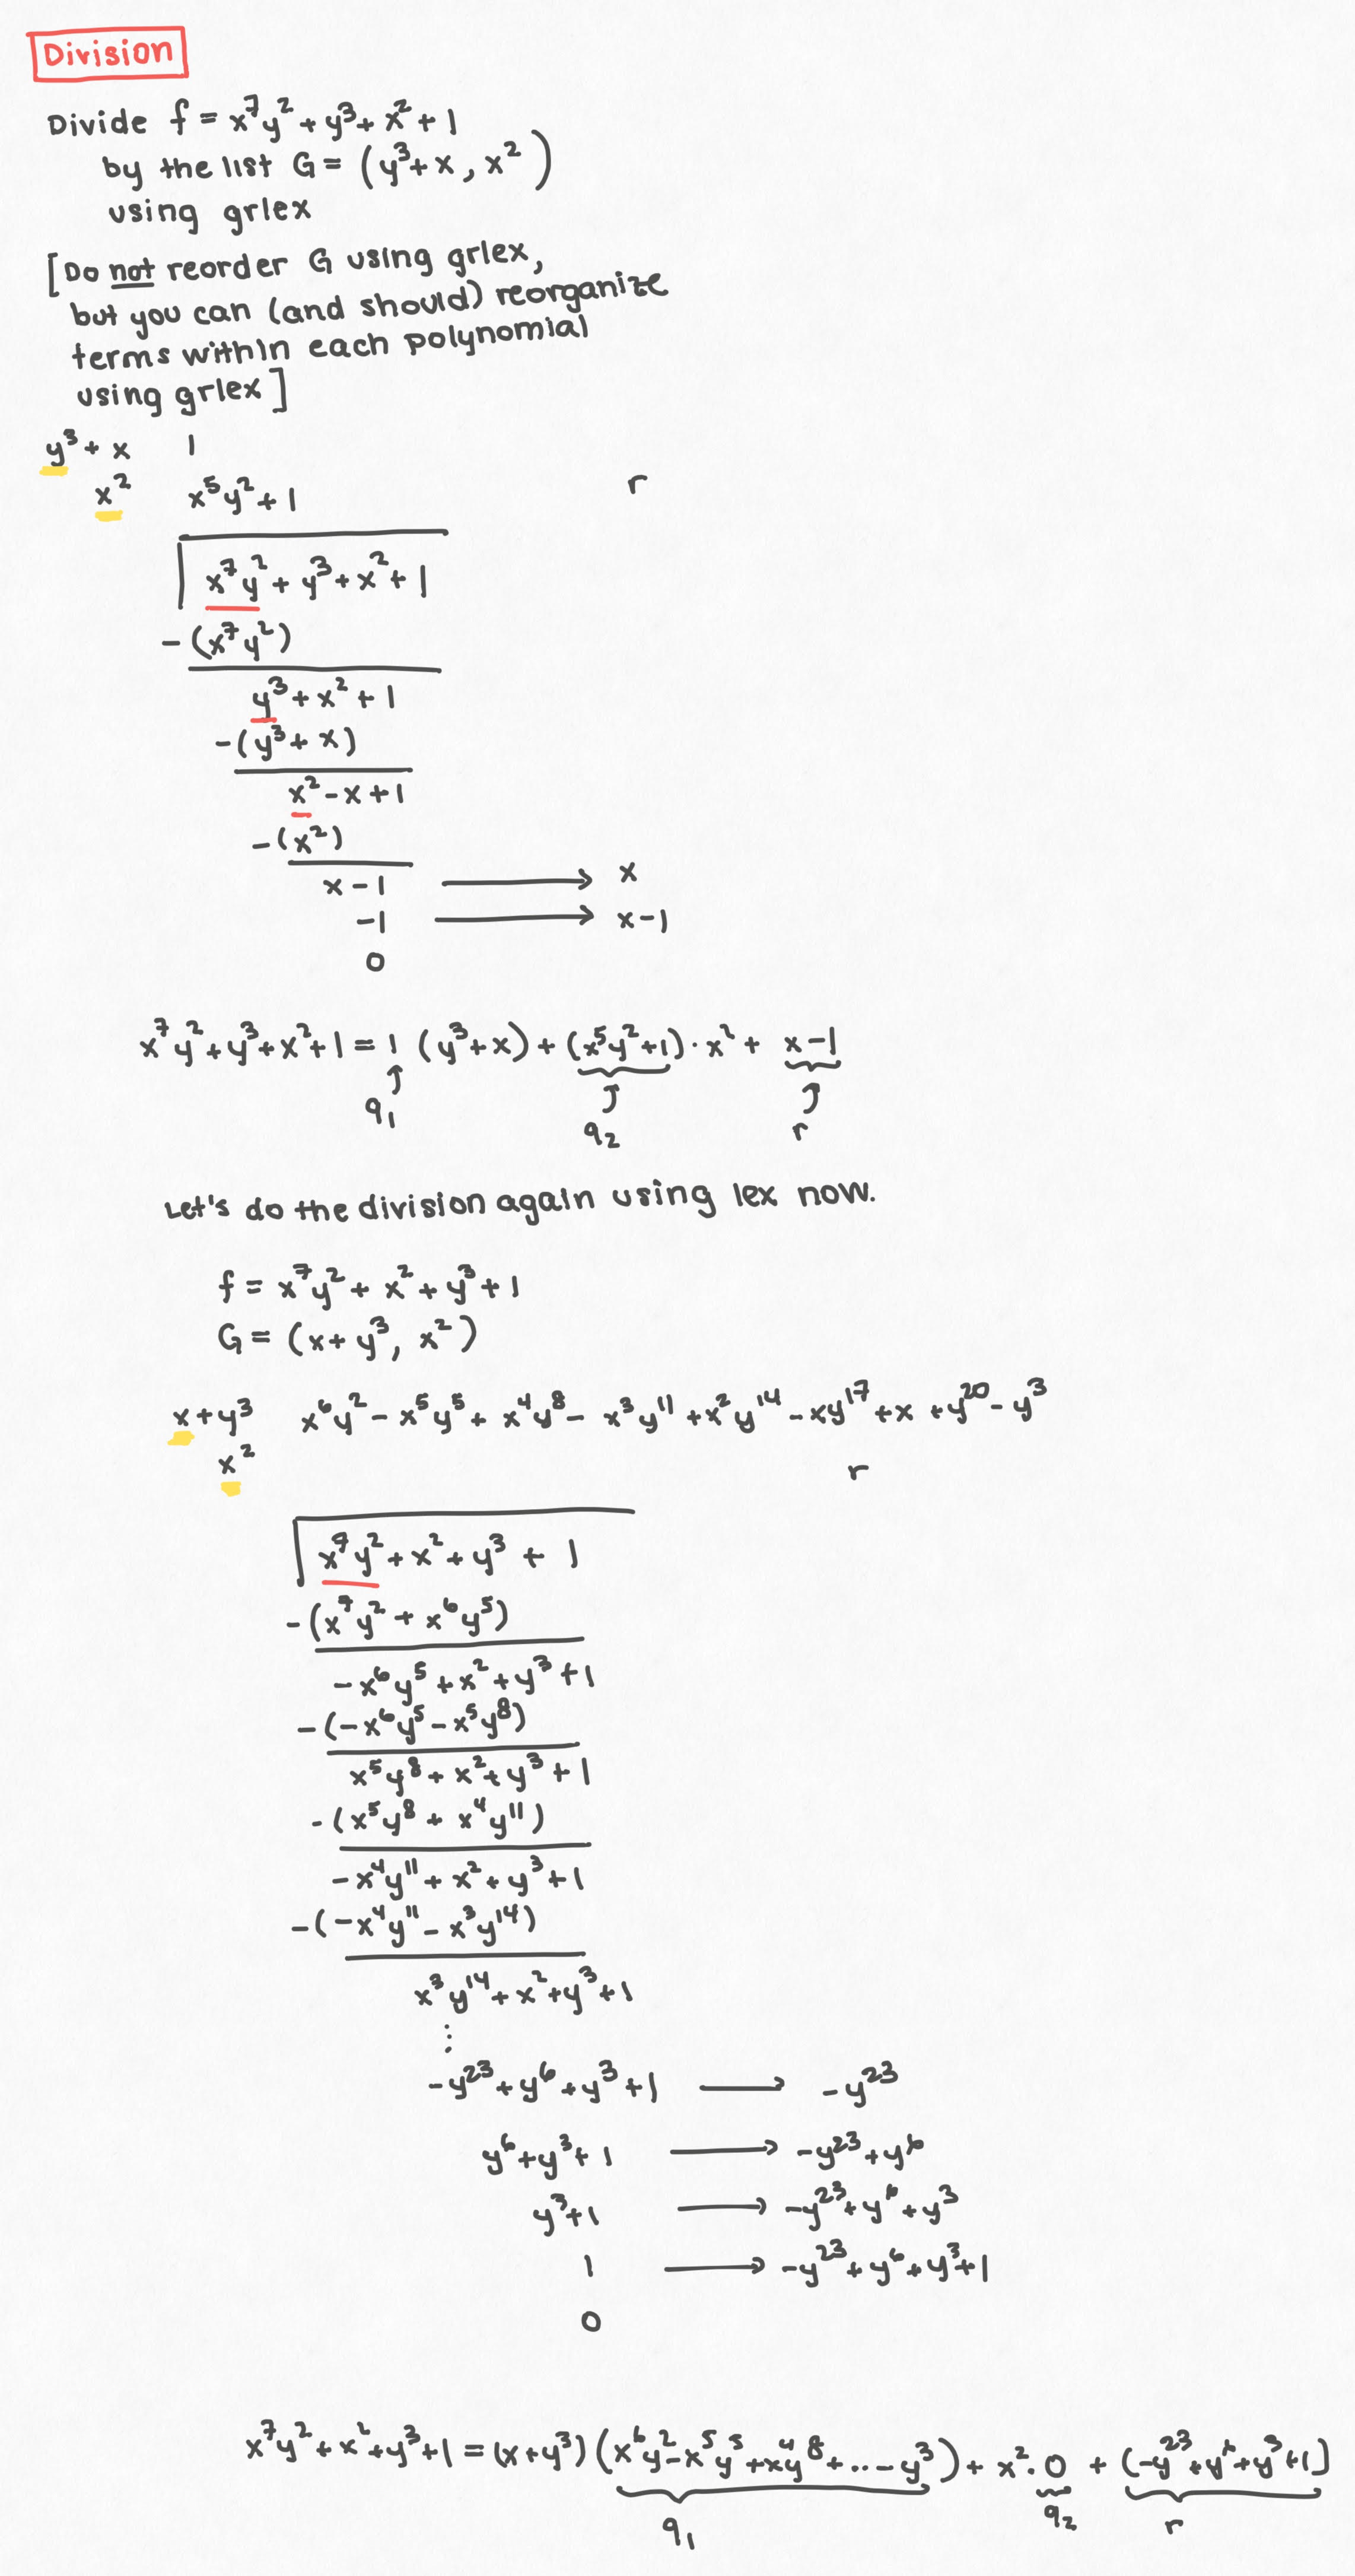 Division
Divide f = x⁷y² + y³ + x² + 1
by the list G = (y³ + x, x²)
using grlex
[Do not reorder G using grlex,
but you can (and should) reorganize
terms within each polynomial
using grlex]
y³ + x 1
x² x⁵y² + 1 r
x⁷y² + y³ + x² + 1
-(x⁷y²)
y³ + x² + 1
-(y³ + x)
x² - x + 1
-(x²)
x - 1 → x
-1 → x - 1
0
x⁷y² + y³ + x² + 1 = 1 (y³ + x) + (x⁵y² + 1) · x² + x - 1
q₁ q₂ r
Let's do the division again using lex now.
f = x⁷y² + x² + y³ + 1
G = (x + y³, x²)
x + y³ x⁶y² - x⁵y⁵ + x⁴y⁸ - x³y¹¹ + x²y¹⁴ - xy¹⁷ + x + y²⁰ - y³
x² r
x⁷y² + x² + y³ + 1
-(x⁷y² + x⁶y⁵)
-x⁶y⁵ + x² + y³ + 1
-(-x⁶y⁵ - x⁵y⁸)
x⁵y⁸ + x² + y³ + 1
-(x⁵y⁸ + x⁴y¹¹)
-x⁴y¹¹ + x² + y³ + 1
-(-x⁴y¹¹ - x³y¹⁴)
x³y¹⁴ + x² + y³ + 1
⋮
-y²³ + y⁶ + y³ + 1 → -y²³
y⁶ + y³ + 1 → -y²³ + y⁶
y³ + 1 → -y²³ + y⁶ + y³
1 → -y²³ + y⁶ + y³ + 1
0
x⁷y² + x² + y³ + 1 = (x + y³) (x⁶y² - x⁵y⁵ + x⁴y⁸ + ... - y³) + x² · 0 + (-y²³ + y⁶ + y³ + 1)
q₁ q₂ r